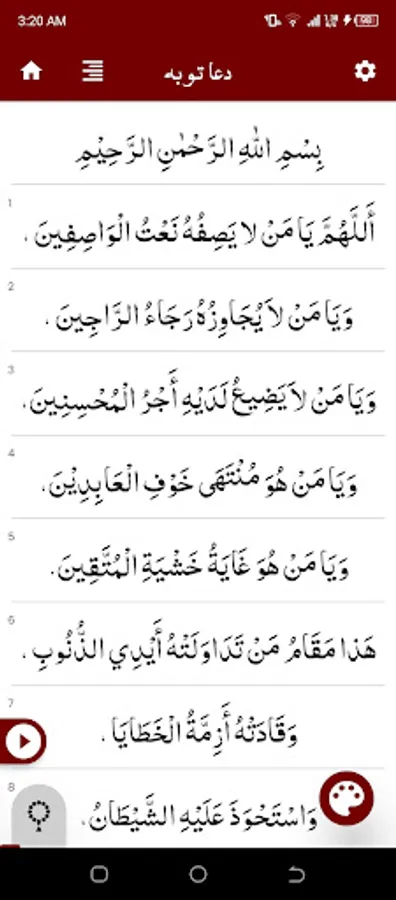 3:20 AM
دعا توبہ
بِسْمِ اللهِ الرَّحْمٰنِ الرَّحِيْمِ
1
أَللَّهُمَّ يَا مَنْ لا يَصِفُهُ نَعْتُ الْوَاصِفِينَ ،
2
وَيَا مَنْ لاَ يُجَاوِزُهُ رَجَاءُ الرَّاجِينَ ،
3
وَيَا مَنْ لاَ يَضِيعُ لَدَيْهِ أَجْرُ الْمُحْسِنِينَ،
4
وَيَا مَنْ هُوَ مُنْتَهَى خَوْفِ الْعَابِدِيْنَ،
5
وَيَا مَنْ هُوَ غَايَةُ خَشْيَةِ الْمُتَّقِينَ.
6
هَذا مَقَامُ مَنْ تَدَاوَلَتْهُ أَيْدِي الذُّنُوبِ ،
7
وَقَادَتْهُ أَزِمَّةُ الْخَطَايَا ،
8
وَاسْتَحْوَذَ عَلَيْهِ الشَّيْطَانُ،